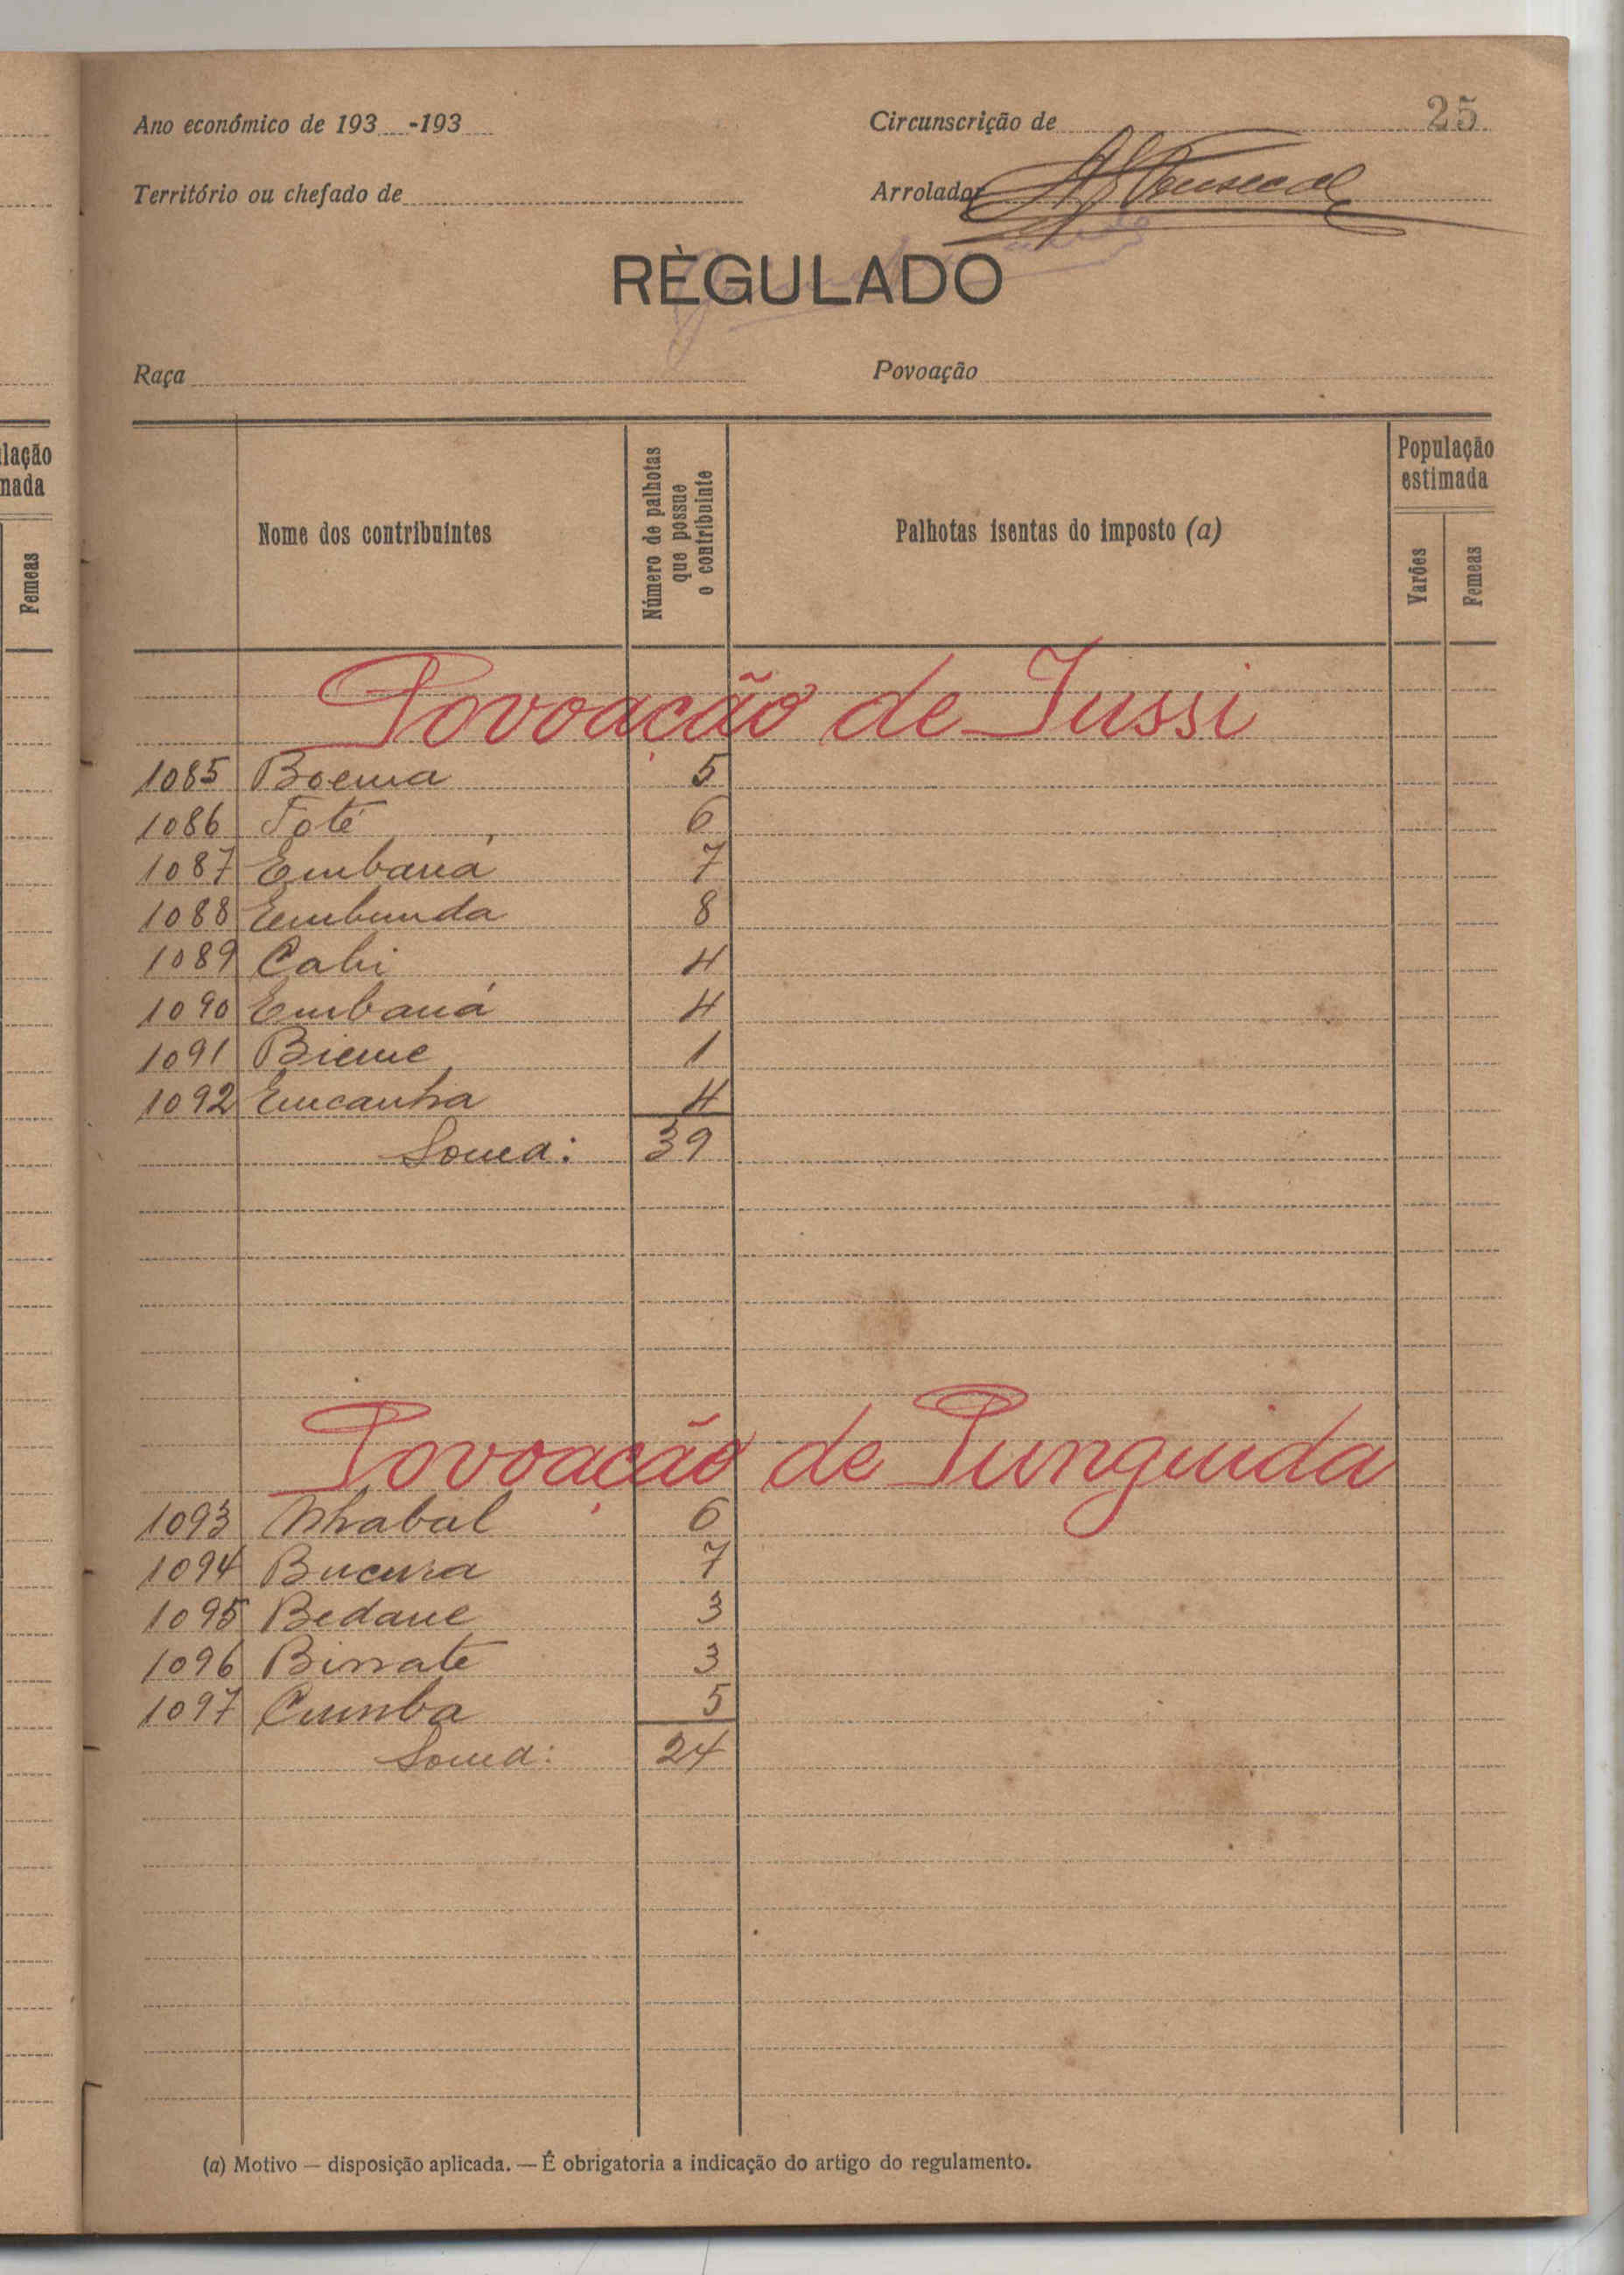 25
Ano económico de 193 -193
Circunscrição de
Território ou chefado de
Arrolador
RÈGULADO
Raça
Povoação
lação
nada
Femeas
Nome dos contribuintes
Número de palhotas que possue o contribuinte
Palhotas isentas do imposto (a)
População estimada
Varões
Femeas
Povoação de Jussi
1085 Boema 5
1086 Toté 6
1087 Embaná 7
1088 Embunda 8
1089 Cabi 4
1090 Embaná 4
1091 Bieme 1
1092 Emcanha 4
Soma: 39
Povoação de Punguida
1093 Nhabal 6
1094 Bucura 7
1095 Bedane 3
1096 Binrate 3
1097 Cumba 5
Soma: 24
(a) Motivo — disposição aplicada. — É obrigatoria a indicação do artigo do regulamento.